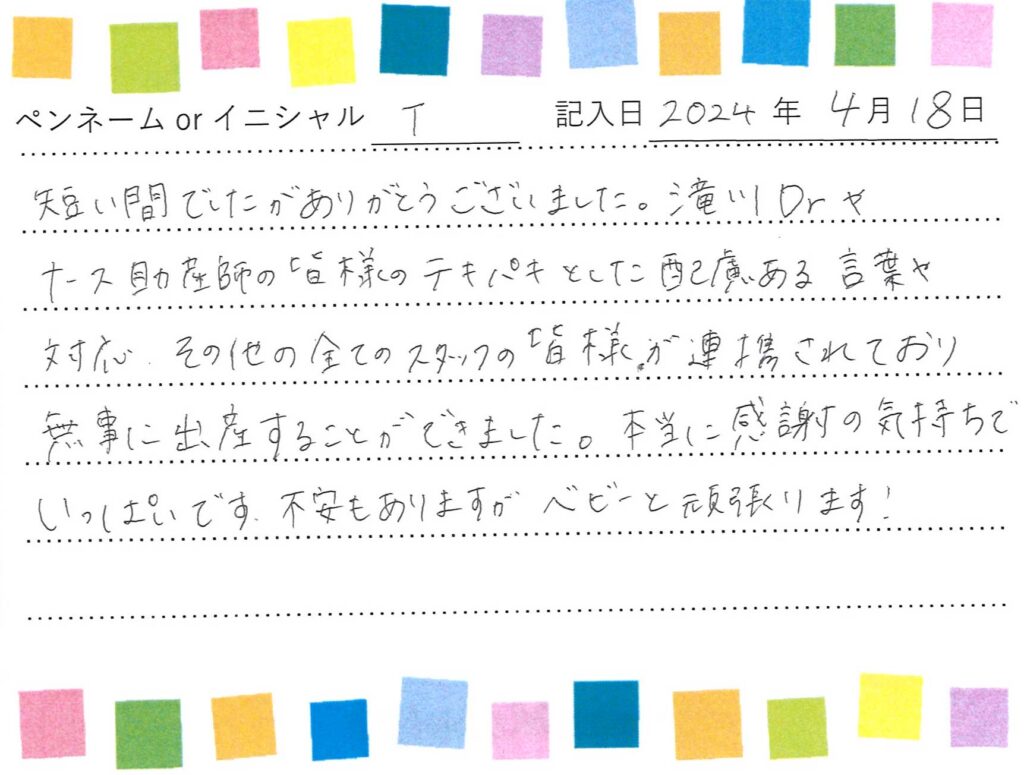 ペンネーム or イニシャル T 記入日 2024 年 4月 18日
短い間でしたがありがとうございました。滝川Drや
ナース助産師の皆様のテキパキとした配慮ある言葉や
対応、その他の全てのスタッフの皆様が連携されており
無事に出産することができました。本当に感謝の気持ちで
いっぱいです。不安もありますが ベビーと頑張ります!